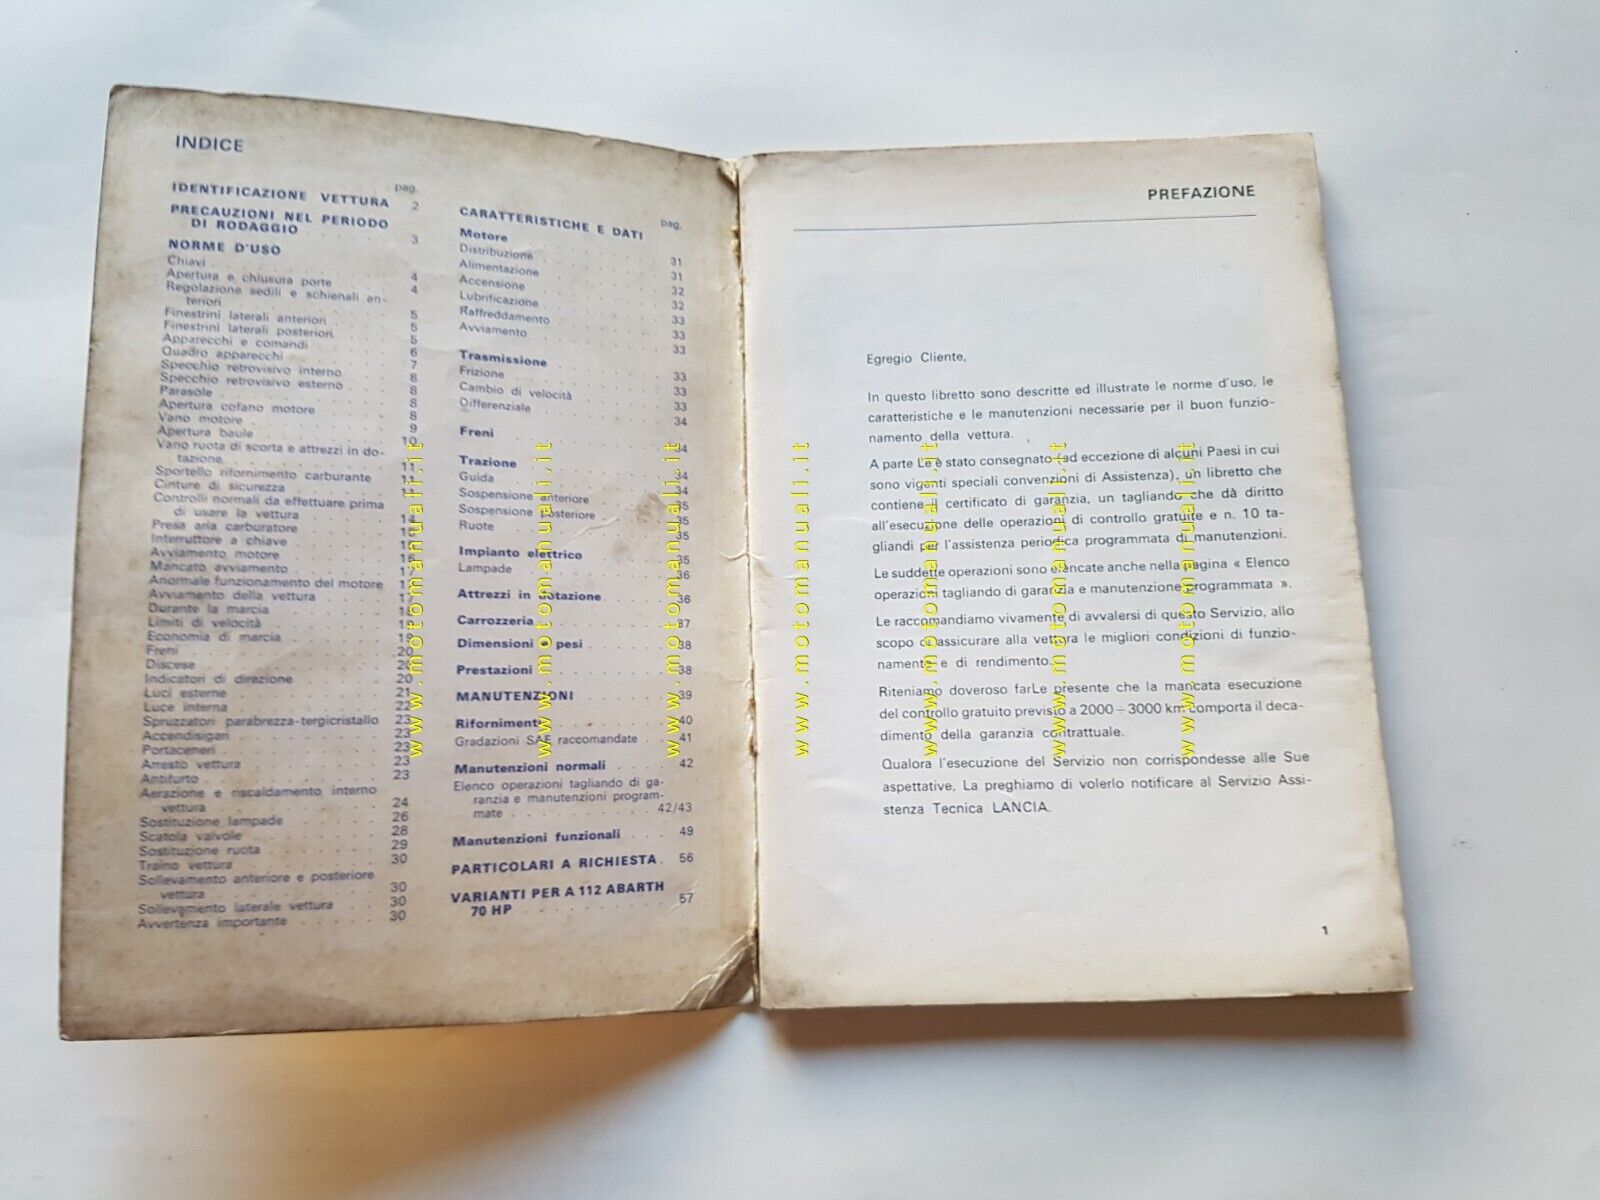 INDICE
pag.
IDENTIFICAZIONE VETTURA 2
PRECAUZIONI NEL PERIODO
DI RODAGGIO . . . . . . 3
NORME D'USO
Chiavi . . . . . . . . . 4
Apertura e chiusura porte . . . 4
Regolazione sedili e schienali an-
teriori . . . . . . . . 5
Finestrini laterali anteriori . . . 5
Finestrini laterali posteriori . . . 5
Apparecchi e comandi . . . . 6
Quadro apparecchi . . . . . 7
Specchio retrovisivo interno . . . 8
Specchio retrovisivo esterno . . . 8
Parasole . . . . . . . . 8
Apertura cofano motore . . . . 8
Vano motore . . . . . . . 9
Apertura baule . . . . . . 10
Vano ruota di scorta e attrezzi in do-
tazione . . . . . . . . 11
Sportello rifornimento carburante 11
Cinture di sicurezza . . . . . 11
Controlli normali da effettuare prima
di usare la vettura . . . . . 14
Presa aria carburatore
Interruttore a chiave
Avviamento motore . . . . . 16
Mancato avviamento . . . . . 17
Anormale funzionamento del motore 17
Avviamento della vettura . . . . 17
Durante la marcia
Limiti di velocità
Economia di marcia . . . . . 19
Freni . . . . . . . . . 20
Discese . . . . . . . . 20
Indicatori di direzione . . . . 20
Luci esterne . . . . . . . 21
Luce interna . . . . . . . 22
Spruzzatori parabrezza-tergicristallo 23
Accendisigari . . . . . . . 23
Portaceneri . . . . . . . 23
Arresto vettura . . . . . . 23
Antifurto . . . . . . . . 23
Aerazione e riscaldamento interno
vettura . . . . . . . . 24
Sostituzione lampade . . . . . 26
Scatola valvole . . . . . . 28
Sostituzione ruota . . . . . 29
Traino vettura . . . . . . 30
Sollevamento anteriore e posteriore
vettura . . . . . . . . 30
Sollevamento laterale vettura . . 30
Avvertenza importante . . . . 30
pag.
CARATTERISTICHE E DATI
Motore . . . . . . . . 31
Distribuzione . . . . . . . 31
Alimentazione . . . . . . . 32
Accensione . . . . . . . 32
Lubrificazione . . . . . . . 33
Raffreddamento . . . . . . 33
Avviamento . . . . . . . 33
Trasmissione . . . . . . 33
Frizione . . . . . . . . 33
Cambio di velocità . . . . . 33
Differenziale . . . . . . . 34
Freni . . . . . . . . . 34
Trazione . . . . . . . . 34
Guida . . . . . . . . . 34
Sospensione anteriore . . . . 35
Sospensione posteriore . . . . 35
Ruote . . . . . . . . . 35
Impianto elettrico . . . . . 35
Lampade . . . . . . . . 36
Attrezzi in dotazione . . . . 36
Carrozzeria . . . . . . . 37
Dimensioni e pesi . . . . . 38
Prestazioni . . . . . . . 38
MANUTENZIONI . . . . . 39
Rifornimenti . . . . . . 40
Gradazioni SAE raccomandate . . 41
Manutenzioni normali . . . . 42
Elenco operazioni tagliando di ga-
ranzia e manutenzioni program-
mate . . . . . . . . 42/43
Manutenzioni funzionali . . . 49
PARTICOLARI A RICHIESTA . 56
VARIANTI PER A 112 ABARTH
70 HP . . . . . . . . 57
PREFAZIONE
Egregio Cliente,
In questo libretto sono descritte ed illustrate le norme d'uso, le
caratteristiche e le manutenzioni necessarie per il buon funzio-
namento della vettura.
A parte Le è stato consegnato (ad eccezione di alcuni Paesi in cui
sono vigenti speciali convenzioni di Assistenza), un libretto che
contiene il certificato di garanzia, un tagliando che dà diritto
all'esecuzione delle operazioni di controllo gratuite e n. 10 ta-
gliandi per l'assistenza periodica programmata di manutenzioni.
Le suddette operazioni sono elencate anche nella pagina « Elenco
operazioni tagliando di garanzia e manutenzione programmata ».
Le raccomandiamo vivamente di avvalersi di questo Servizio, allo
scopo di assicurare alla vettura le migliori condizioni di funzio-
namento e di rendimento.
Riteniamo doveroso farLe presente che la mancata esecuzione
del controllo gratuito previsto a 2000 ÷ 3000 km comporta il deca-
dimento della garanzia contrattuale.
Qualora l'esecuzione del Servizio non corrispondesse alle Sue
aspettative, La preghiamo di volerlo notificare al Servizio Assi-
stenza Tecnica LANCIA.
1
www.motomanuali.it
www.motomanuali.it
www.motomanuali.it
www.motomanuali.it
www.motomanuali.it
www.motomanuali.it
www.motomanuali.it